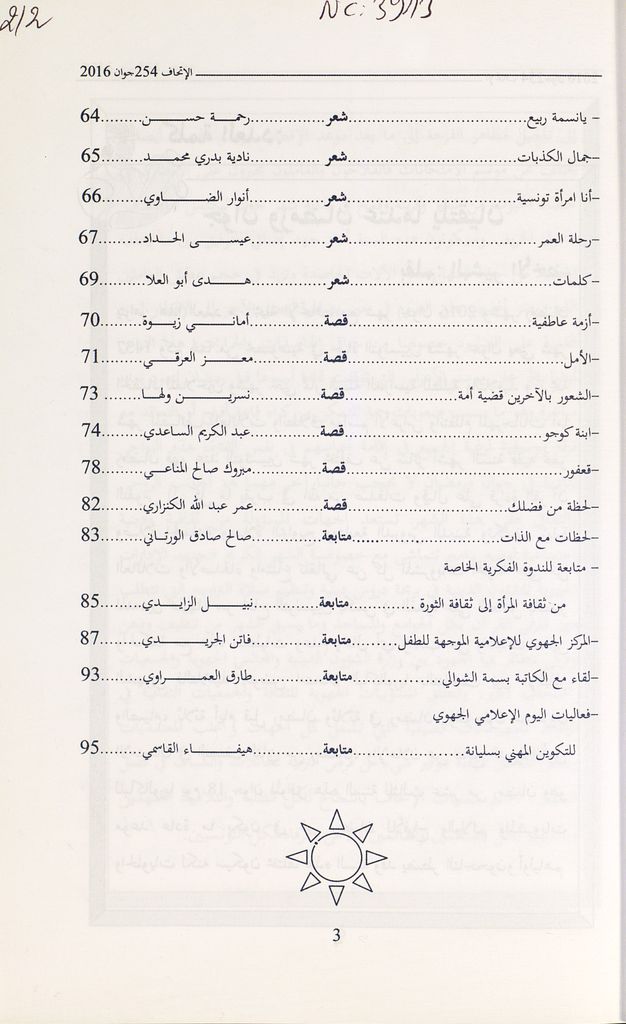 2/2
NC: 3913
الإتحاف 254 جوان 2016
- يانسمة ربيع..............شعر..............رحمة حسن..........64
-جمال الكذبات..............شعر..............نادية بدري محمد..........65
-أنا امرأة تونسية..............شعر..............أنوار الضاوي..........66
-رحلة العمر..............شعر..............عيسى الحداد..........67
-كلمات..............شعر..............هدى أبو العلا..........69
-أزمة عاطفية..............قصة..............أماني زيوة..........70
-الأمل..............قصة..............معز العرقي..........71
-الشعور بالآخرين قضية أمة..............قصة..............نسرين ولها..........73
-ابنة كوجو..............قصة..............عبد الكريم الساعدي..........74
-قعفور..............قصة..............مبروك صالح المناعي..........78
-لحظة من فضلك..............قصة..............عمر عبد الله الكنزاري..........82
-لحظات مع الذات..............متابعة..............صالح صادق الورتاني..........83
- متابعة للندوة الفكرية الخاصة
من ثقافة المرأة إلى ثقافة الثورة ..............متابعة..............نبيل الزايدي..........85
-المركز الجهوي للإعلامية الموجهة للطفل..............متابعة..............فاتن الجريدي..........87
-لقاء مع الكاتبة بسمة الشوالي..............متابعة..............طارق العمراوي..........93
-فعاليات اليوم الإعلامي الجهوي
للتكوين المهني بسليانة..............متابعة..............هيفاء القاسمي..........95
3